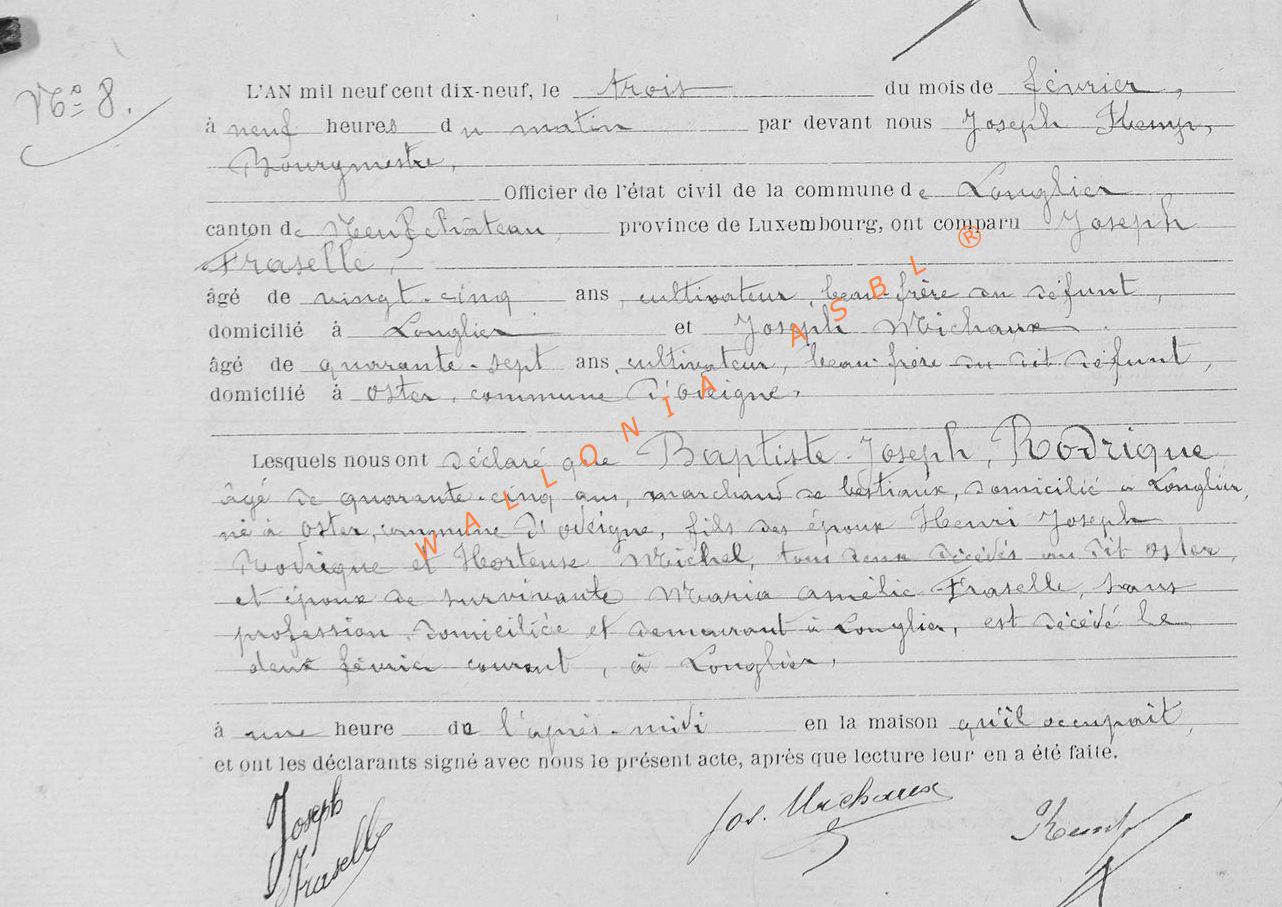 N° 8.
L'AN mil neuf cent dix-neuf, le trois du mois de février,
à neuf heures du matin par devant nous Joseph
Bourgmestre,
Officier de l'état civil de la commune de Longlier
canton de Neufchâteau, province de Luxembourg, ont comparu Joseph
Fraselle,
âgé de vingt-cinq ans, cultivateur, beau-frère du défunt,
domicilié à Longlier et Joseph Michaux
âgé de quarante-sept ans, cultivateur, beau-frère du dit défunt,
domicilié à Oster, commune d'Odeigne,
Lesquels nous ont déclaré que Baptiste-Joseph, Rodrique
âgé de quarante-cinq ans, marchand de bestiaux, domicilié à Longlier,
né à Oster, commune d'Odeigne, fils des époux Henri Joseph
Rodrique et Hortense Michel, tous deux décédés au dit Oster,
et époux de survivante Maria Amélie Fraselle, sans
profession, domiciliée et demeurant à Longlier, est décédé le
deux février courant, à Longlier,
à une heure de l'après-midi en la maison qu'il occupait,
et ont les déclarants signé avec nous le présent acte, après que lecture leur en a été faite.
Joseph Fraselle
Jos. Michaux
WALLONIA ASBL ®